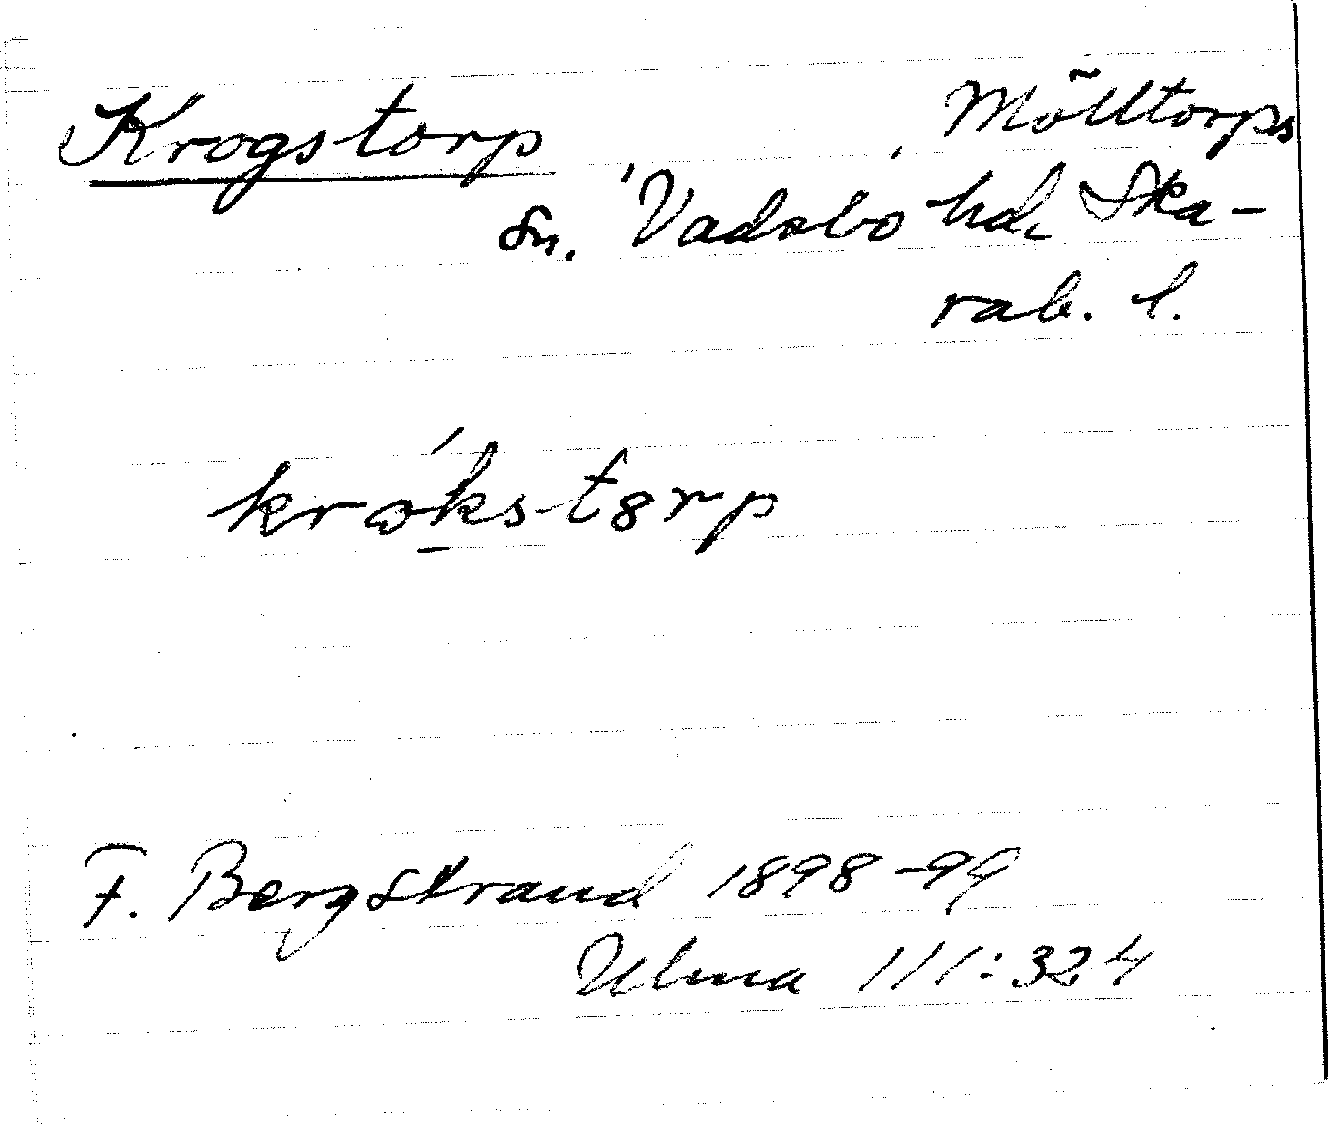 Krogstorp Mölltorps
sn. Vadsbo hd. Ska-
rab. l.
krɷ́ks-tȣrp
F. Bergstrand 1898-99
Ulma 111:324